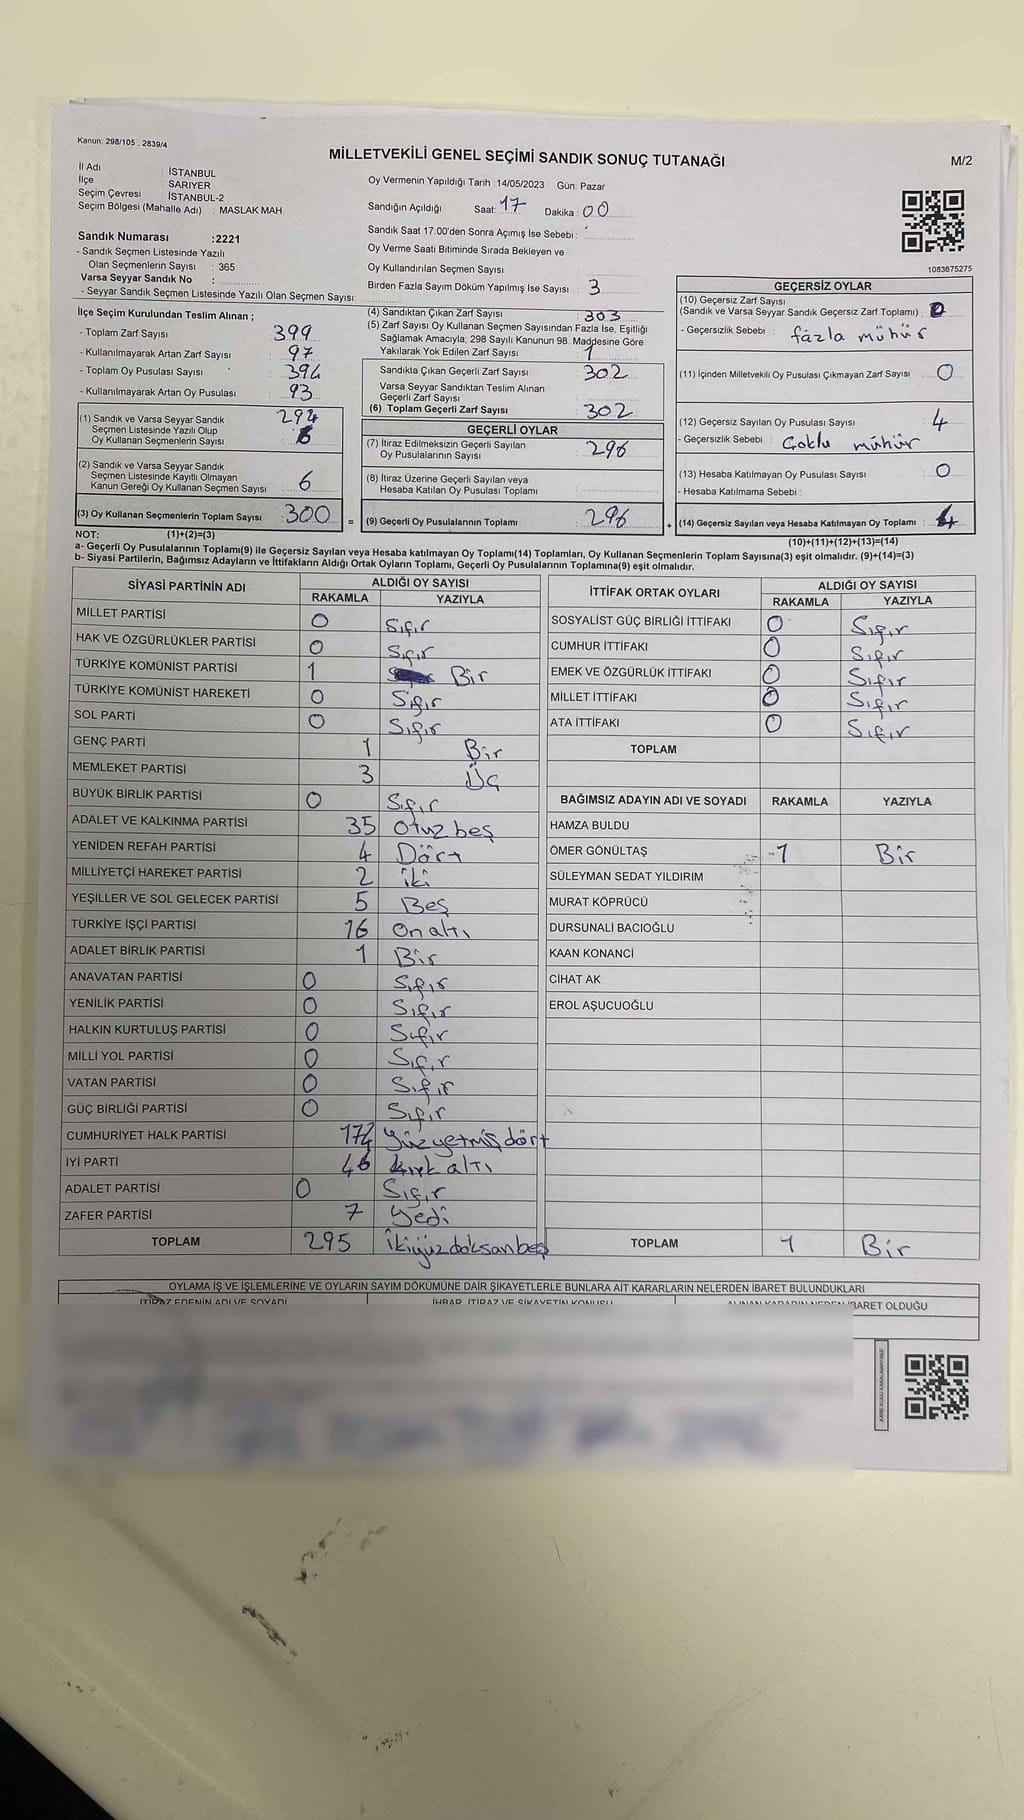 Kanun: 298/105 , 2839/4
MİLLETVEKİLİ GENEL SEÇİMİ SANDIK SONUÇ TUTANAĞI
M/2
İl Adı : İSTANBUL
İlçe : SARIYER
Seçim Çevresi : İSTANBUL-2
Seçim Bölgesi (Mahalle Adı) : MASLAK MAH.
Oy Vermenin Yapıldığı Tarih :14/05/2023 Gün: Pazar
Sandığın Açıldığı Saat: 17 Dakika : 00
Sandık Saat 17:00'den Sonra Açımış İse Sebebi :
Oy Verme Saati Bitiminde Sırada Bekleyen ve
Oy Kullandırılan Seçmen Sayısı
Birden Fazla Sayım Döküm Yapılmış İse Sayısı : 3
1083675275
Sandık Numarası :2221
- Sandık Seçmen Listesinde Yazılı
Olan Seçmenlerin Sayısı : 365
Varsa Seyyar Sandık No :
- Seyyar Sandık Seçmen Listesinde Yazılı Olan Seçmen Sayısı:
İlçe Seçim Kurulundan Teslim Alınan ;
- Toplam Zarf Sayısı : 399
- Kullanılmayarak Artan Zarf Sayısı : 97
- Toplam Oy Pusulası Sayısı : 394
- Kullanılmayarak Artan Oy Pusulası : 93
(1) Sandık ve Varsa Seyyar Sandık
Seçmen Listesinde Yazılı Olup
Oy Kullanan Seçmenlerin Sayısı : 294
(2) Sandık ve Varsa Seyyar Sandık
Seçmen Listesinde Kayıtlı Olmayan
Kanun Gereği Oy Kullanan Seçmen Sayısı : 6
(3) Oy Kullanan Seçmenlerin Toplam Sayısı : 300
(4) Sandıktan Çıkan Zarf Sayısı : 303
(5) Zarf Sayısı Oy Kullanan Seçmen Sayısından Fazla İse, Eşitliği
Sağlamak Amacıyla, 298 Sayılı Kanunun 98. Maddesine Göre
Yakılarak Yok Edilen Zarf Sayısı : 1
Sandıkta Çıkan Geçerli Zarf Sayısı : 302
Varsa Seyyar Sandıktan Teslim Alınan
Geçerli Zarf Sayısı :
(6) Toplam Geçerli Zarf Sayısı : 302
GEÇERLİ OYLAR
(7) İtiraz Edilmeksizin Geçerli Sayılan
Oy Pusulalarının Sayısı : 296
(8) İtiraz Üzerine Geçerli Sayılan veya
Hesaba Katılan Oy Pusulası Toplamı
= (9) Geçerli Oy Pusulalarının Toplamı : 296
GEÇERSİZ OYLAR
(10) Geçersiz Zarf Sayısı
(Sandık ve Varsa Seyyar Sandık Geçersiz Zarf Toplamı) :
- Geçersizlik Sebebi : fazla mühür
(11) İçinden Milletvekili Oy Pusulası Çıkmayan Zarf Sayısı : 0
(12) Geçersiz Sayılan Oy Pusulası Sayısı : 4
- Geçersizlik Sebebi : Çoklu mühür
(13) Hesaba Katılmayan Oy Pusulası Sayısı : 0
- Hesaba Katılmama Sebebi :
+ (14) Geçersiz Sayılan veya Hesaba Katılmayan Oy Toplamı : 4
NOT: (1)+(2)=(3)
(10)+(11)+(12)+(13)=(14)
a- Geçerli Oy Pusulalarının Toplamı(9) ile Geçersiz Sayılan veya Hesaba katılmayan Oy Toplamı(14) Toplamları, Oy Kullanan Seçmenlerin Toplam Sayısına(3) eşit olmalıdır. (9)+(14)=(3)
b- Siyasi Partilerin, Bağımsız Adayların ve İttifakların Aldığı Ortak Oyların Toplamı, Geçerli Oy Pusulalarının Toplamına(9) eşit olmalıdır.
SİYASİ PARTİNİN ADI ALDIĞI OY SAYISI
RAKAMLA YAZIYLA
MİLLET PARTİSİ 0 Sıfır
HAK VE ÖZGÜRLÜKLER PARTİSİ 0 Sıfır
TÜRKİYE KOMÜNİST PARTİSİ 1 Bir
TÜRKİYE KOMÜNİST HAREKETİ 0 Sıfır
SOL PARTİ 0 Sıfır
GENÇ PARTİ 1 Bir
MEMLEKET PARTİSİ 3 Üç
BÜYÜK BİRLİK PARTİSİ 0 Sıfır
ADALET VE KALKINMA PARTİSİ 35 Otuz beş
YENİDEN REFAH PARTİSİ 4 Dört
MİLLİYETÇİ HAREKET PARTİSİ 2 İki
YEŞİLLER VE SOL GELECEK PARTİSİ 5 Beş
TÜRKİYE İŞÇİ PARTİSİ 16 On altı
ADALET BİRLİK PARTİSİ 1 Bir
ANAVATAN PARTİSİ 0 Sıfır
YENİLİK PARTİSİ 0 Sıfır
HALKIN KURTULUŞ PARTİSİ 0 Sıfır
MİLLİ YOL PARTİSİ 0 Sıfır
VATAN PARTİSİ 0 Sıfır
GÜÇ BİRLİĞİ PARTİSİ 0 Sıfır
CUMHURİYET HALK PARTİSİ 174 yüz yetmiş dört
İYİ PARTİ 46 kırk altı
ADALET PARTİSİ 0 Sıfır
ZAFER PARTİSİ 7 yedi
TOPLAM 295 ikiyüz doksan beş
İTTİFAK ORTAK OYLARI ALDIĞI OY SAYISI
RAKAMLA YAZIYLA
SOSYALİST GÜÇ BİRLİĞİ İTTİFAKI 0 Sıfır
CUMHUR İTTİFAKI 0 Sıfır
EMEK VE ÖZGÜRLÜK İTTİFAKI 0 Sıfır
MİLLET İTTİFAKI 0 Sıfır
ATA İTTİFAKI 0 Sıfır
TOPLAM
BAĞIMSIZ ADAYIN ADI VE SOYADI RAKAMLA YAZIYLA
HAMZA BULDU
ÖMER GÖNÜLTAŞ 1 Bir
SÜLEYMAN SEDAT YILDIRIM
MURAT KÖPRÜCÜ
DURSUNALİ BACIOĞLU
KAAN KONANCİ
CİHAT AK
EROL AŞUCUOĞLU
TOPLAM 1 Bir
OYLAMA İŞ VE İŞLEMLERİNE VE OYLARIN SAYIM DÖKÜMÜNE DAİR ŞİKAYETLERLE BUNLARA AİT KARARLARIN NELERDEN İBARET BULUNDUKLARI
İTİRAZ EDENİN ADI VE SOYADI İHBAR, İTİRAZ VE ŞİKAYETİN KONUSU ALINAN KARARIN NEDEN İBARET OLDUĞU